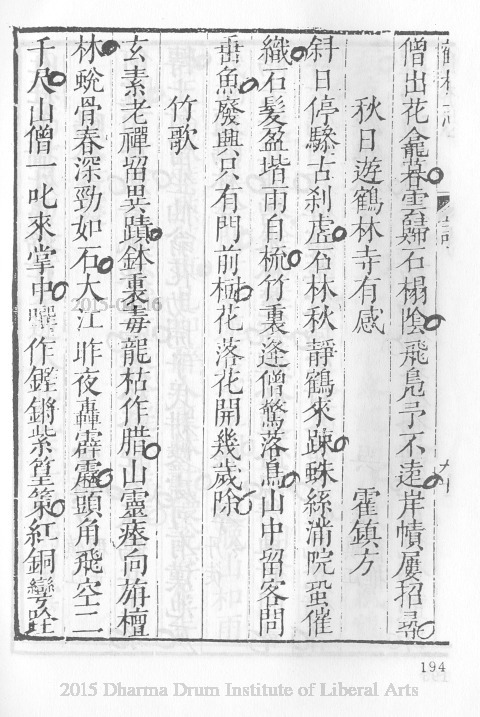 僧出花龕暮雲歸石榻陰飛鳧予不遠岸幘屢招尋
秋日遊鶴林寺有感 霍鎮方
斜日停驂古刹虛石林秋靜鶴來疎蛛絲滿院蛩催
織石髮盈堦雨自梳竹裏逢僧驚落鳥山中留客問
垂魚廢興只有門前樹花落花開幾歲除
竹歌
玄素老禪留異蹟鉢裏毒龍枯作腊山靈瘞向旃檀
林蛻骨春深勁如石大江昨夜轟霹靂頭角飛空二
千尺山僧一叱來掌中噿作鏗鏘紫篁策紅銅彎跧
194
2015-01-16
2015 Dharma Drum Institute of Liberal Arts